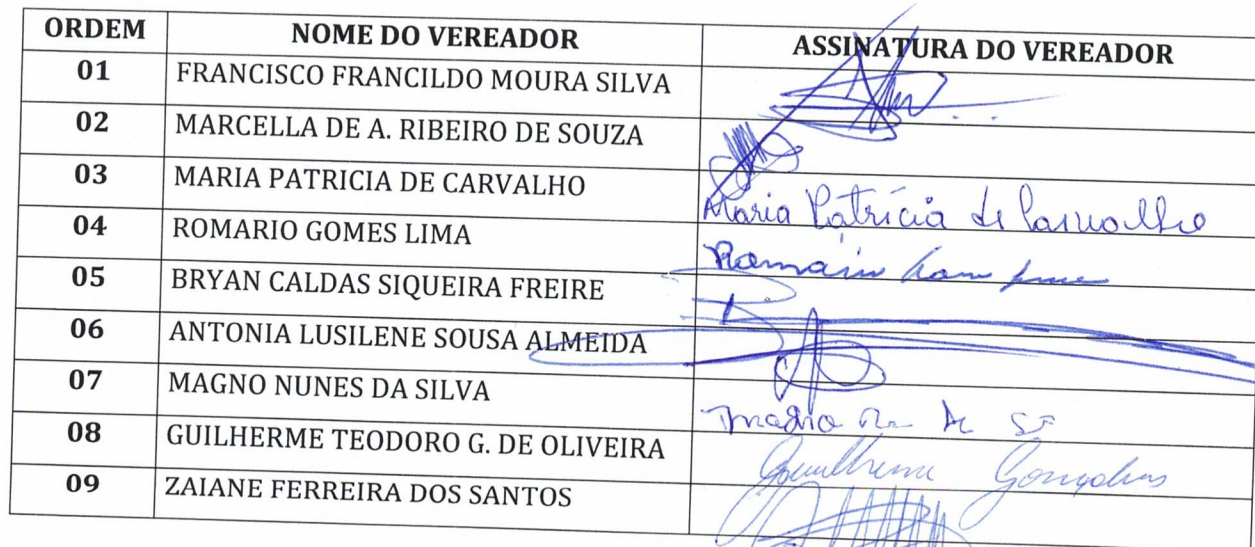 ORDEM NOME DO VEREADOR ASSINATURA DO VEREADOR
01 FRANCISCO FRANCILDO MOURA SILVA
02 MARCELLA DE A. RIBEIRO DE SOUZA
03 MARIA PATRICIA DE CARVALHO Maria Patrícia de Carvalho
04 ROMARIO GOMES LIMA
05 BRYAN CALDAS SIQUEIRA FREIRE
06 ANTONIA LUSILENE SOUSA ALMEIDA
07 MAGNO NUNES DA SILVA
08 GUILHERME TEODORO G. DE OLIVEIRA Guilherme Gonçalves
09 ZAIANE FERREIRA DOS SANTOS